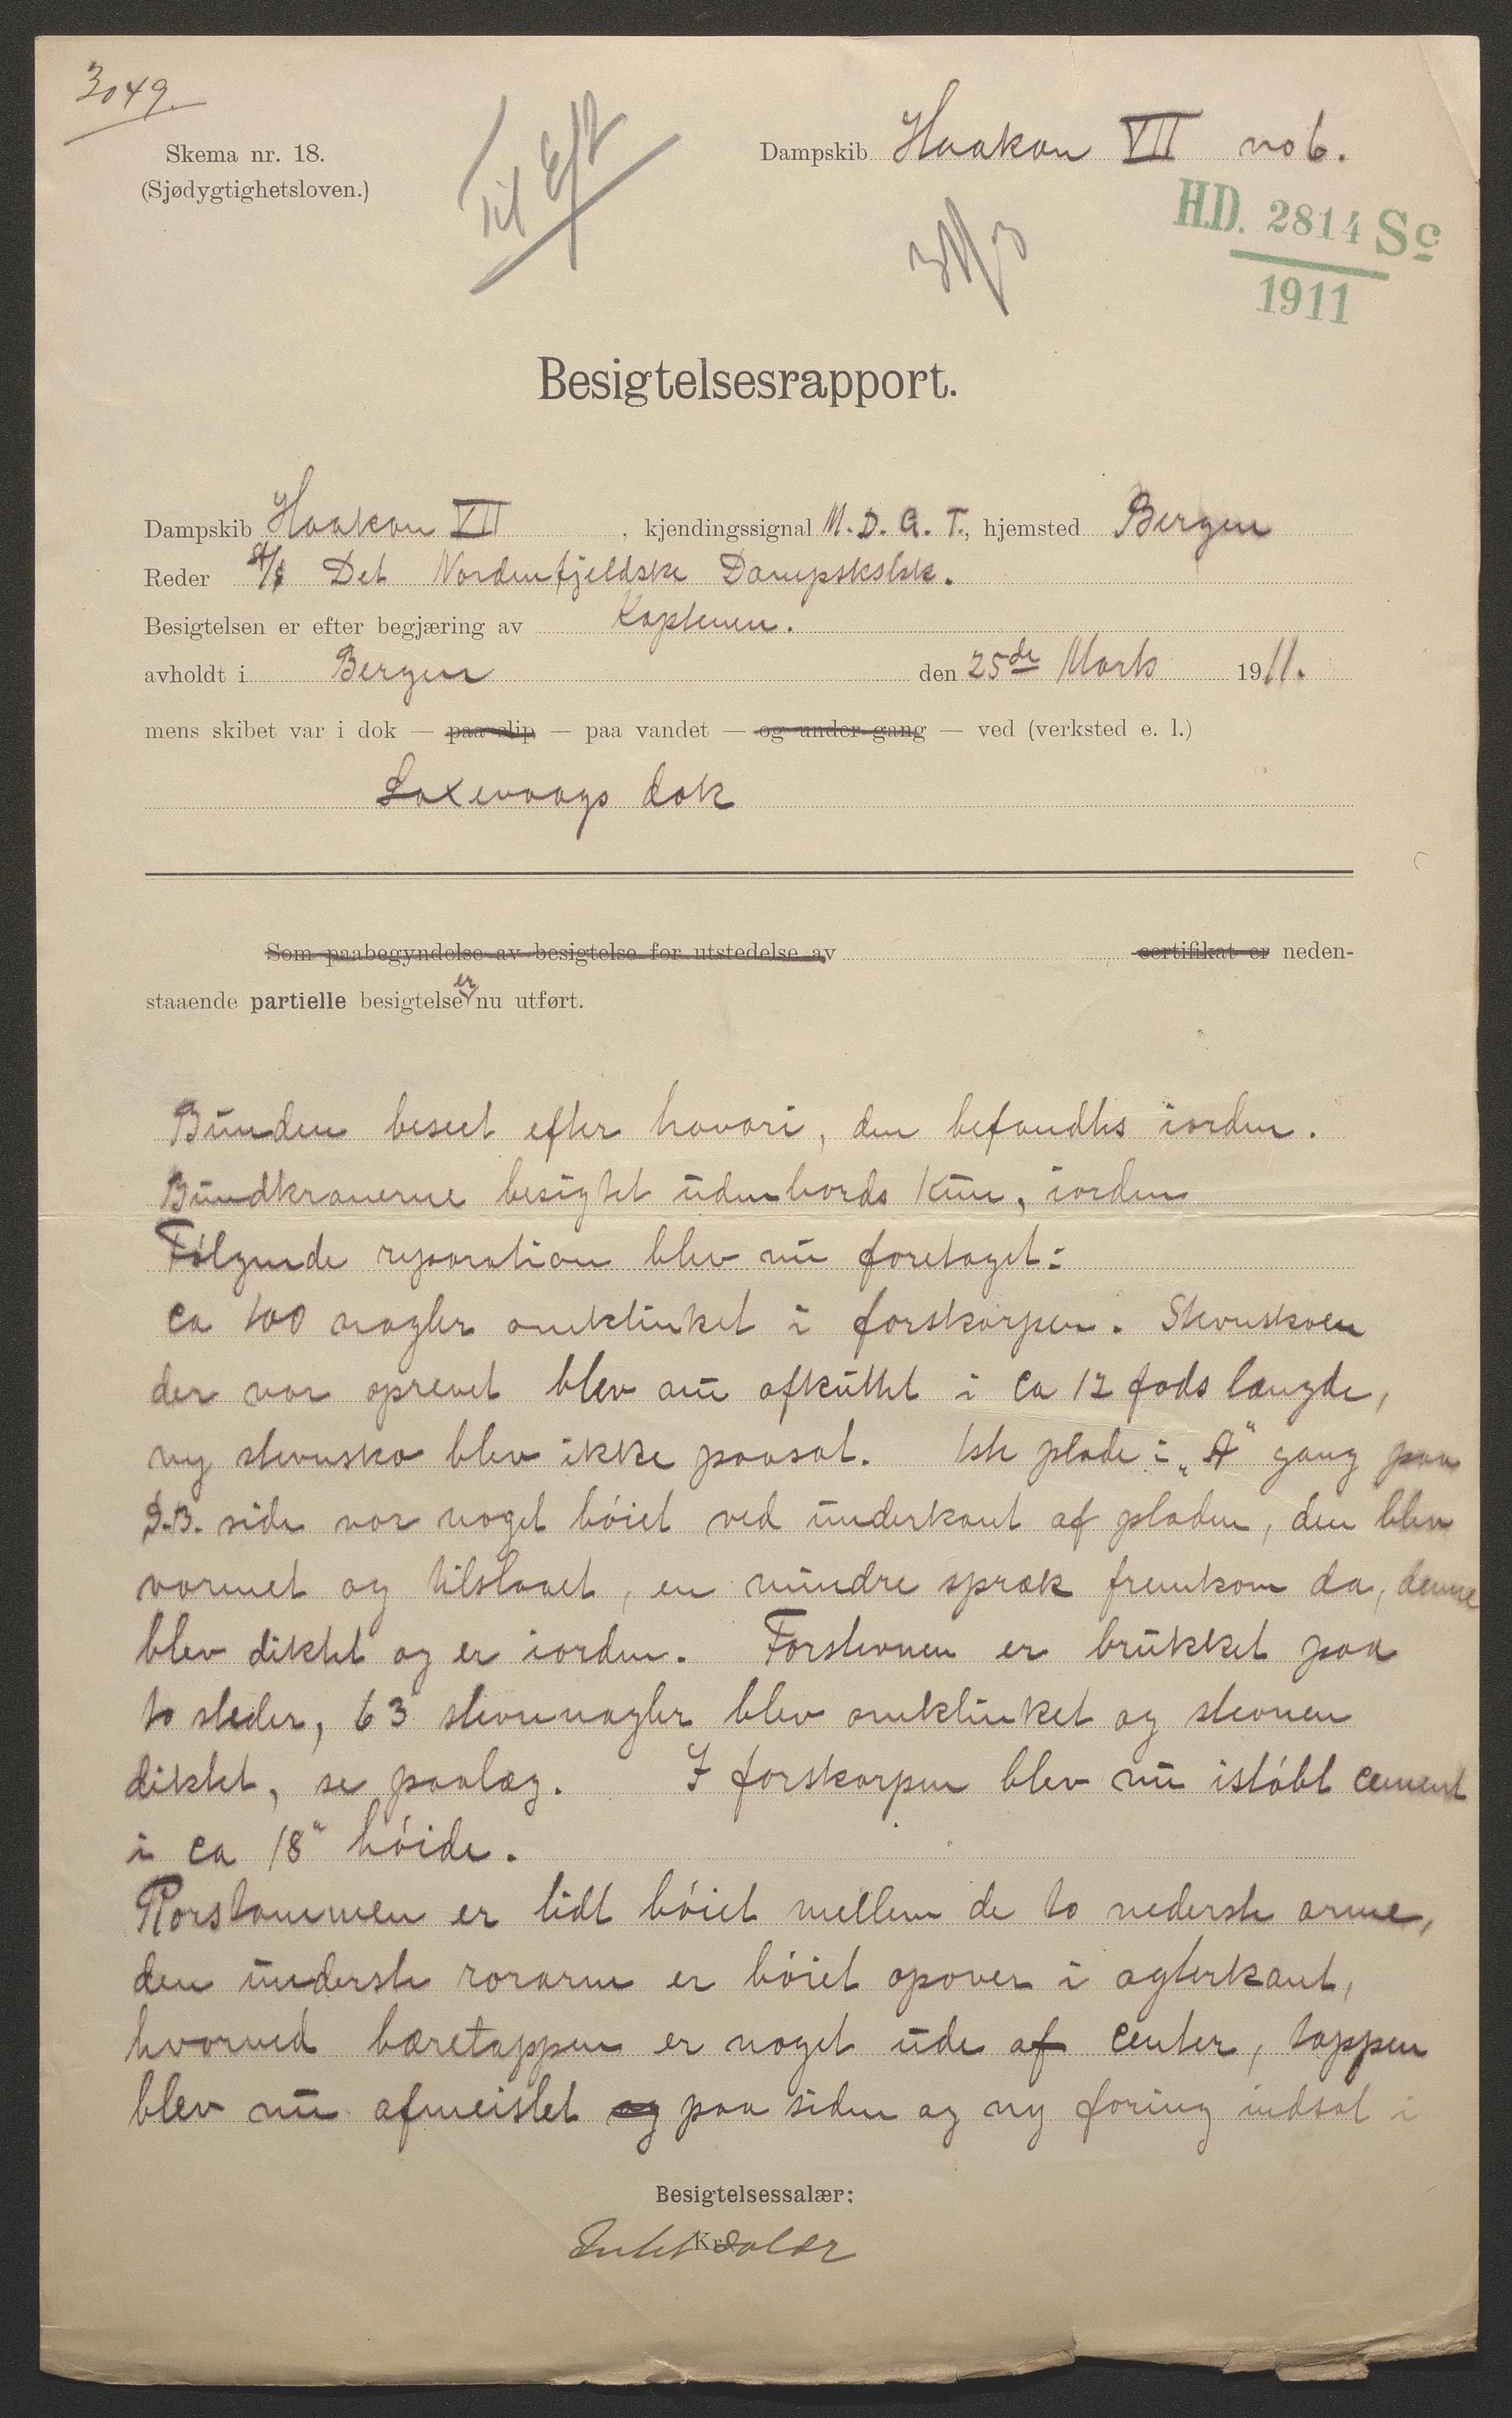 3049.
Skema nr. 18.
(Sjødygtighetsloven.)
Til Eft
Dampskib Haakon VII no 6.
H.D. 2814 Sc
1911
Besigtelsesrapport.
Dampskib Haakon VII, kjendingssignal M. D. G. T., hjemsted Bergen
Reder A/S Det Nordenfjeldske Dampskslsk.
Besigtelsen er efter begjæring av Kaptenen.
avholdt i Bergen den 25de Marts 1911.
mens skibet var i dok — paa slip — paa vandet — og under gang — ved (verksted e. l.)
Laxevaags dok
Som paabegyndelse av besigtelse for utstedelse av certifikat er neden-
staaende partielle besigtelse er nu utført.
Bunden beseet efter havari, den befandtes iorden.
Bundkranerne besigtet udenbords kun, iorden
Følgende reparation blev nu foretaget:
Ca 100 nagler omklinket i forskarpen. Stevnskoen
der var oprevet blev nu afkuttet i ca 12 fods længde,
ny stevnsko blev ikke paasat. 1ste plade i „A" gang paa
S.B. side var noget bøiet ved underkant af pladen, den blev
varmet og tilslaaet, en mindre spræk fremkom da, denne
blev diktet og er iorden. Forstevnen er brukket paa
to steder, 63 stevnnagler blev omklinket og stevnen
diktet, se paalæg. I forskarpen blev nu istøbt cement
i ca 18" høide.
Rorstammen er lidt bøiet mellem de to nederste arme,
den underste rorarm er bøiet opover i agterkant,
hvorved bæretappen er noget ude af center, tappen
blev nu afmeislet og paa siden og ny foring indsat i
Besigtelsessalær:
Kr.
Intet salær